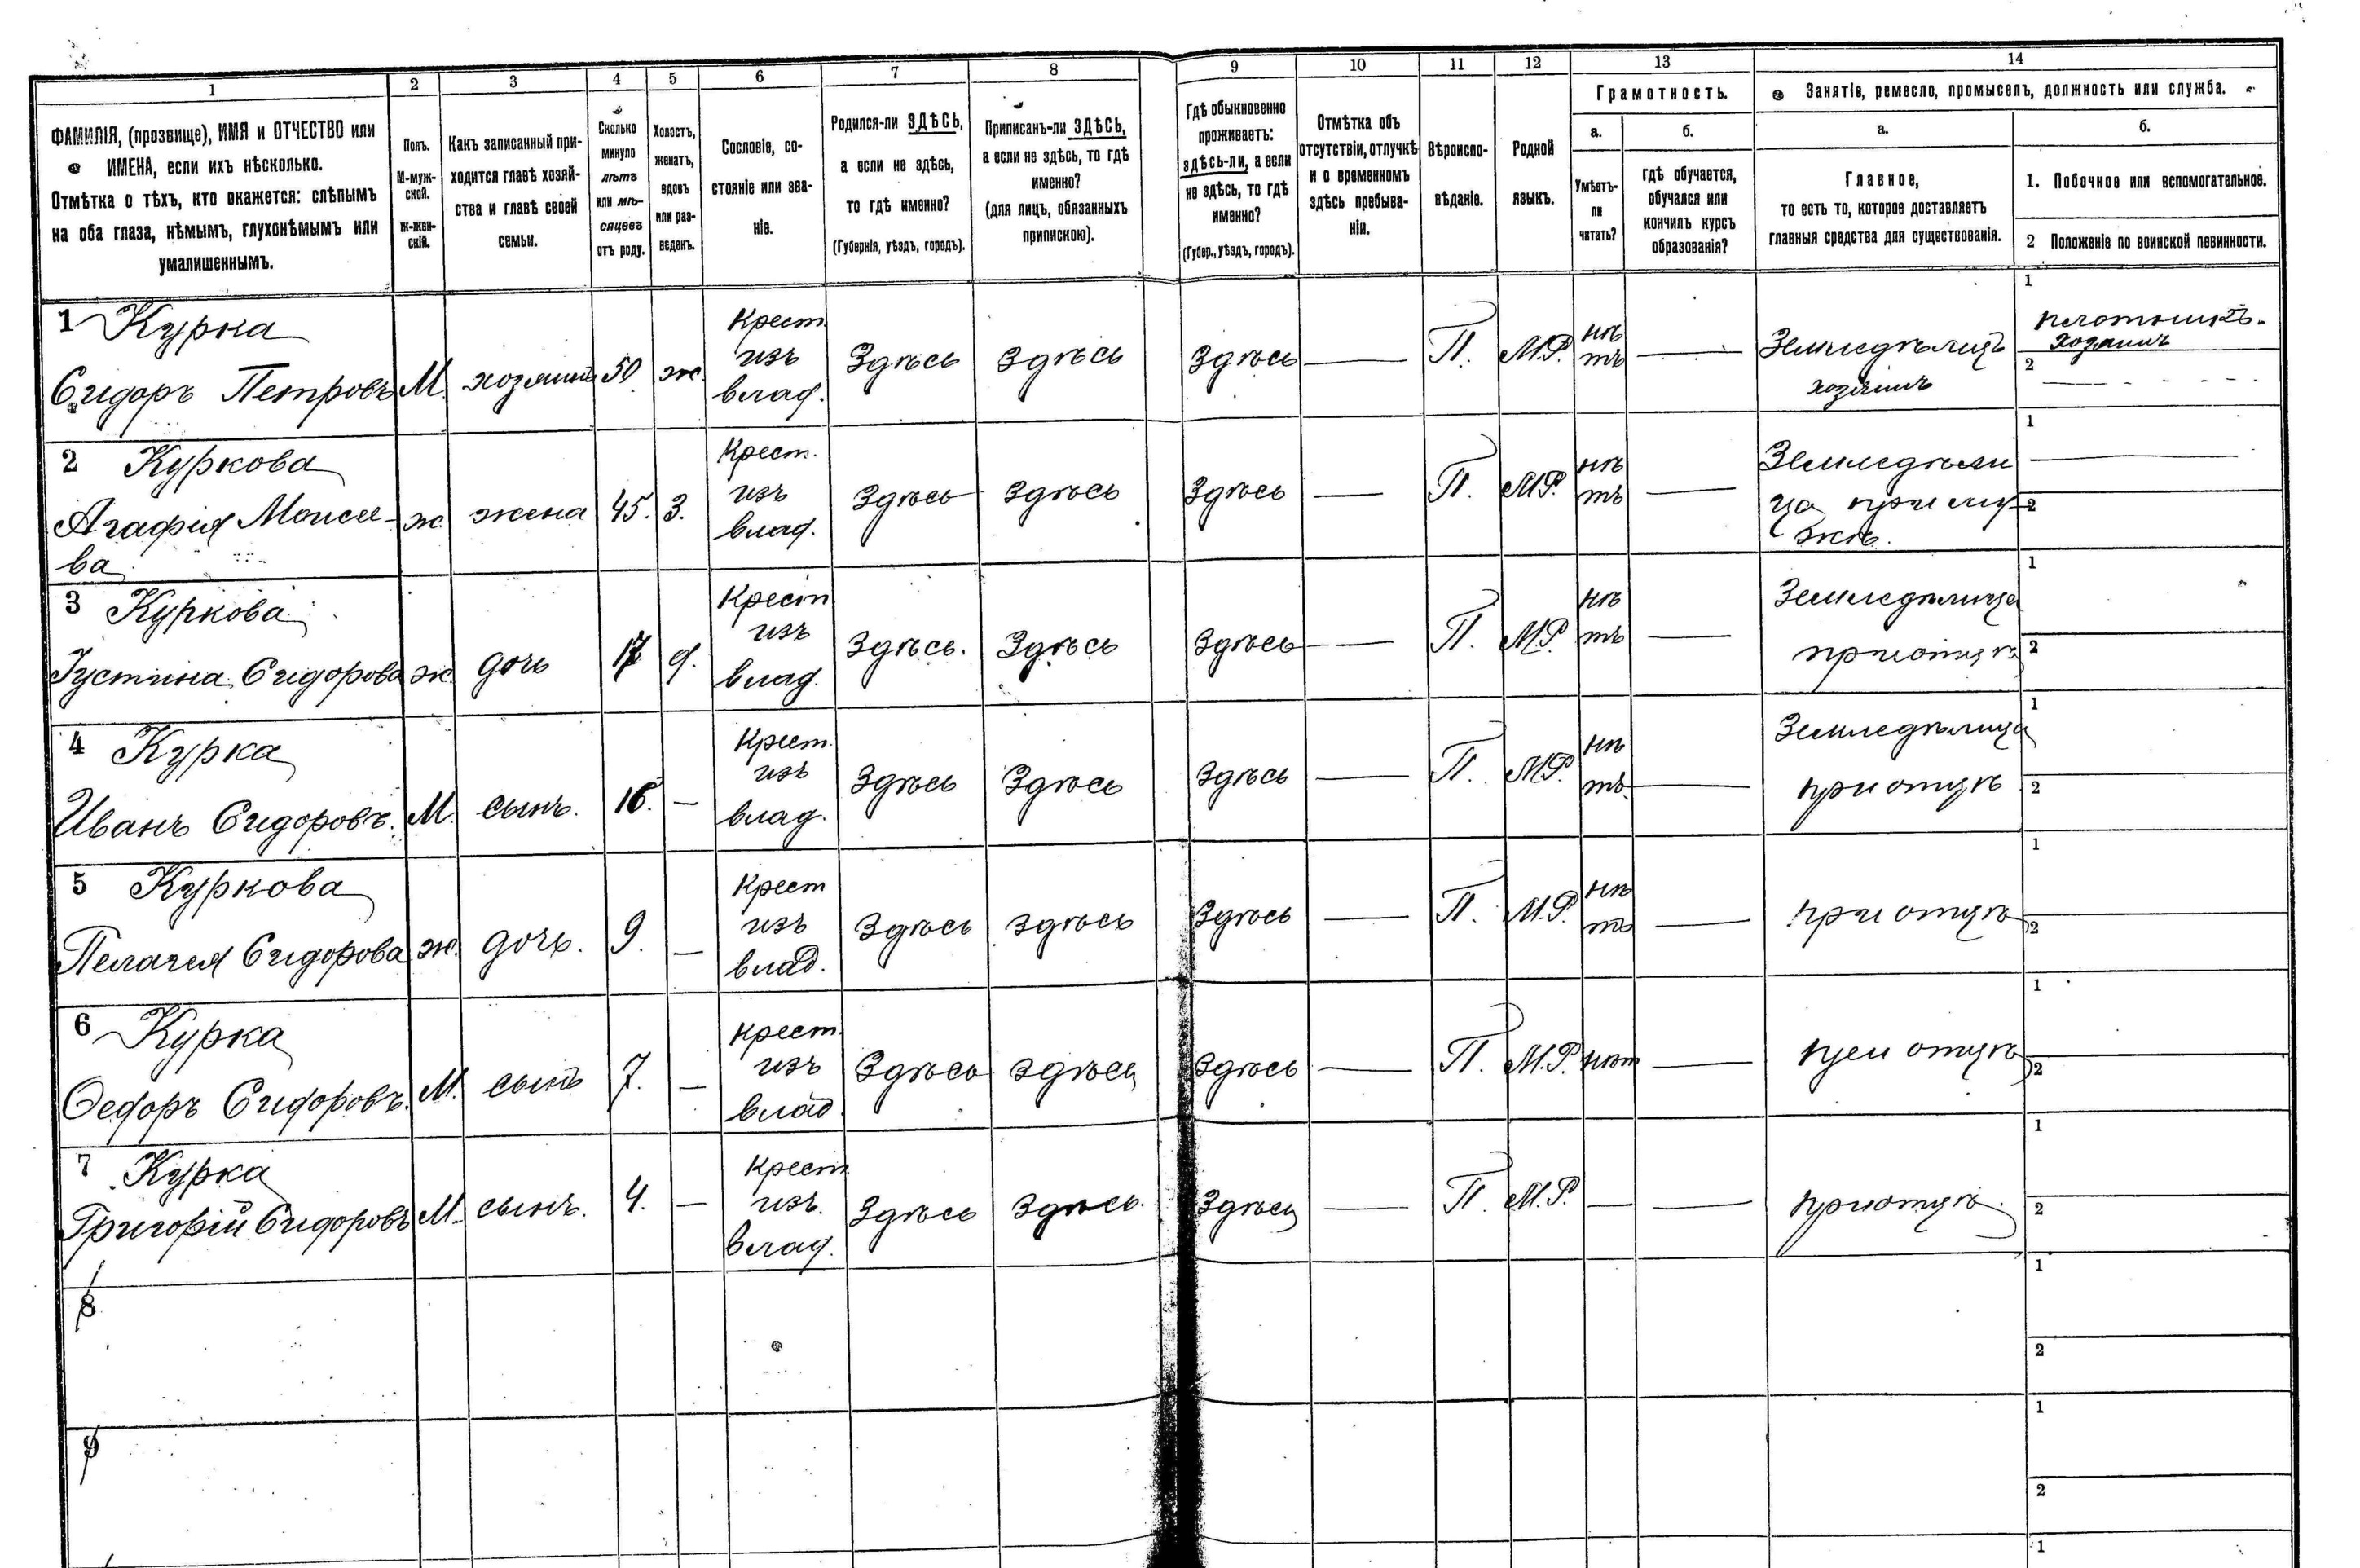 1 2 3 4 5 6 7 8 9 10 11 12 13 14
ФАМИЛІЯ, (прозвище), ИМЯ и ОТЧЕСТВО или
ИМЕНА, если ихъ нѣсколько.
Отмѣтка о тѣхъ, кто окажется: слѣпымъ
на оба глаза, нѣмымъ, глухонѣмымъ или
умалишеннымъ.
Полъ.
М-муж-
ской.
ж-жен-
скій.
Какъ записанный при-
ходится главѣ хозяй-
ства и главѣ своей
семьи.
Сколько
минуло
лѣтъ
или мѣ-
сяцевъ
отъ роду.
Холостъ,
женатъ,
вдовъ
или раз-
веденъ.
Сословіе, со-
стояніе или зва-
ніе.
Родился-ли ЗДѢСЬ,
а если не здѣсь,
то гдѣ именно?
(Губернія, уѣздъ, городъ).
Приписанъ-ли ЗДѢСЬ,
а если не здѣсь, то гдѣ
именно?
(для лицъ, обязанныхъ
припискою).
Гдѣ обыкновенно
проживаетъ:
здѣсь-ли, а если
не здѣсь, то гдѣ
именно?
(Губер., уѣздъ, городъ).
Отмѣтка объ
отсутствіи, отлучкѣ
и о временномъ
здѣсь пребыва-
ніи.
Вѣроиспо-
вѣданіе.
Родной
языкъ.
Грамотность.
а.
Умѣетъ-
ли
читать?
б.
гдѣ обучается,
обучался или
кончилъ курсъ
образованія?
Занятіе, ремесло, промыселъ, должность или служба.
а.
Главное,
то есть то, которое доставляетъ
главныя средства для существованія.
б.
1. Побочное или вспомогательное.
2 Положеніе по воинской повинности.
1 Курка
Сидоръ Петровъ
М.
хозяинъ
50
ж.
Крест.
изъ
влад.
Здѣсь
Здѣсь
Здѣсь
—
П.
М.Р.
нѣ
тъ
—
Земледѣлецъ
хозяинъ
1
плотникъ-
хозяинъ
2
2 Куркова
Агафія Моисее-
ва
ж.
жена
45.
З.
Крест.
изъ
влад.
Здѣсь
Здѣсь
Здѣсь
—
П.
М.Р.
нѣ
тъ
—
Земледѣли
ца при му-
жѣ.
1
2
3 Куркова
Густина Сидорова
ж.
дочь
17
д.
Крест
изъ
влад.
Здѣсь.
Здѣсь
Здѣсь
—
П.
М.Р.
нѣ
тъ
—
Земледѣлица
при отцѣ
1
2
4 Курка
Иванъ Сидоровъ.
М.
сынъ.
16.
—
Крест.
изъ
влад.
Здѣсь
Здѣсь
Здѣсь
—
П.
М.Р.
нѣ
тъ
—
Земледѣлица
при отцѣ
1
2
5 Куркова
Пелагея Сидорова
ж.
дочь.
9.
—
Крест
изъ
влад.
Здѣсь
Здѣсь
Здѣсь
—
П.
М.Р.
нѣ
тъ
—
при отцѣ
1
2
6 Курка
Ѳедоръ Сидоровъ.
М.
сынъ
7.
—
Крест.
изъ
влад.
Здѣсь
Здѣсь
Здѣсь
—
П.
М.Р.
нѣт
—
при отцѣ
1
2
7 Курка
Григорій Сидоровъ
М.
сынъ.
4.
—
Крест
изъ.
влад.
Здѣсь
Здѣсь.
Здѣсь
—
П.
М.Р.
—
—
при отцѣ.
1
2
8
1
2
9
1
2
1